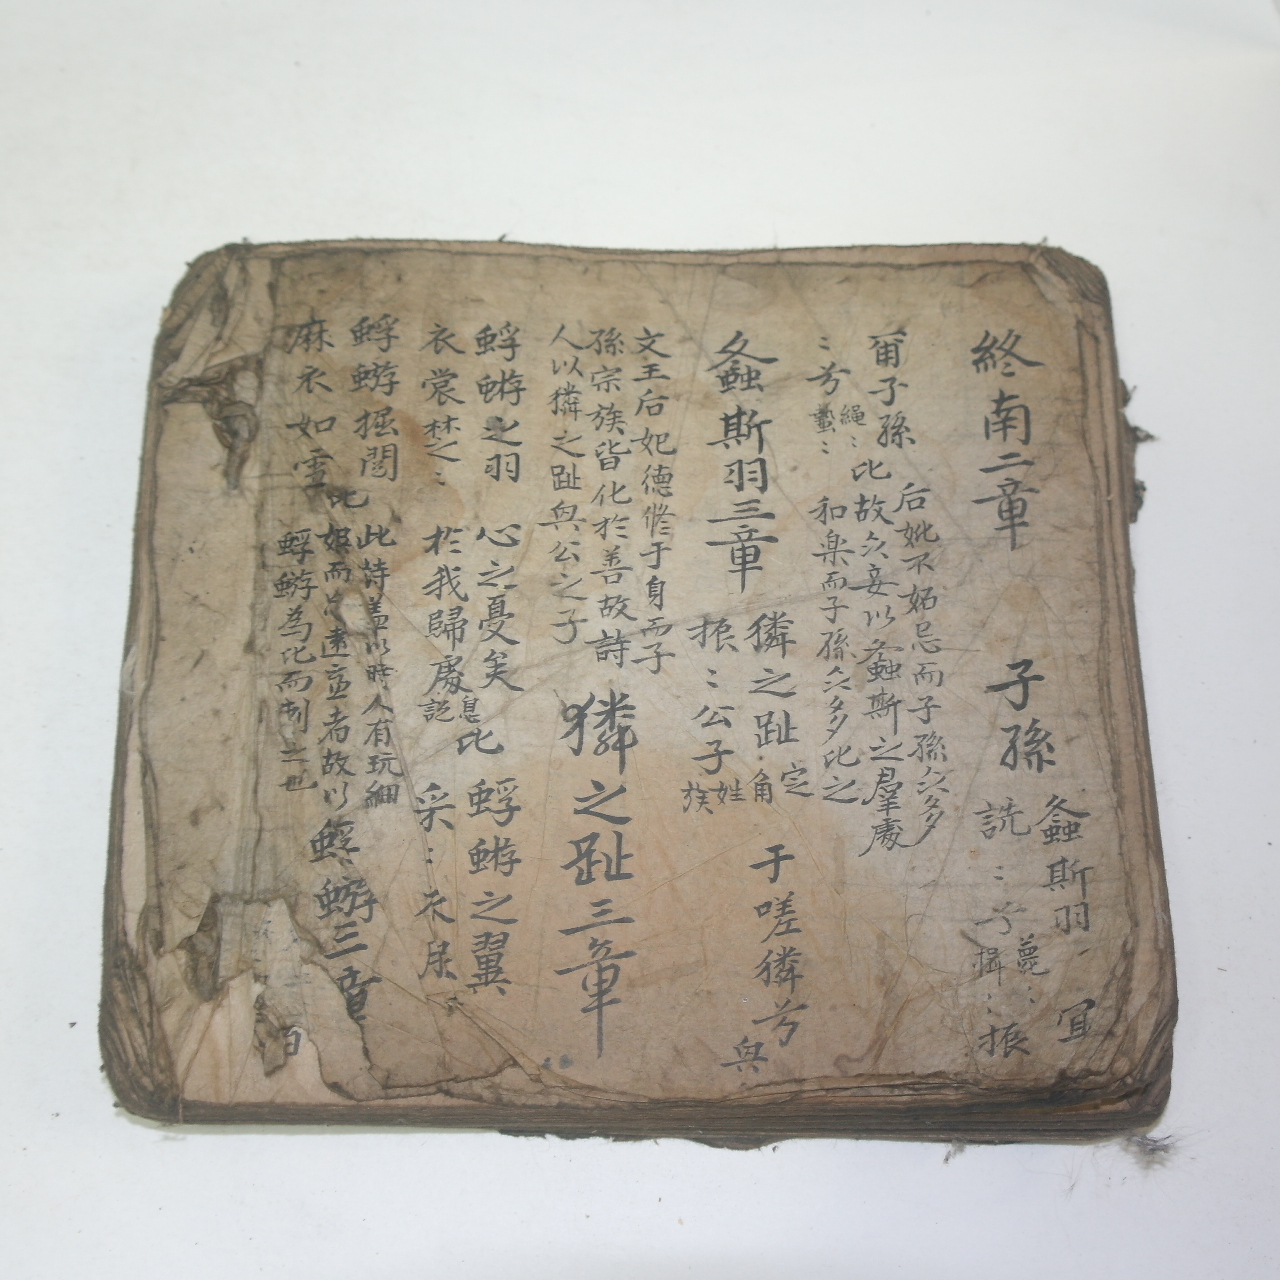 終南二章
子孫
螽斯羽
詵〻兮
薨〻
揖〻
宜
振
爾子孫
〻兮
繩〻
蟄〻
比
后妣不妬忌而子孫衆多
故衆妾以螽斯之羣處
和樂而子孫衆多比之
螽斯羽三章
獜之趾
定
角
振〻公子
姓
族
于嗟獜兮
興
文王后妃德修于身而子
孫宗族皆化於善故詩
人以獜之趾興公之子
獜之趾三章
蜉蝣之羽
衣裳楚〻
心之憂矣
於我歸處
息
説
比
蜉蝣之翼
采〻衣服
蜉蝣掘閱
麻衣如雪
比
此詩盖以時人有玩細
娛而忘遠慮者故以
蜉蝣為比而刺之也
蜉蝣三章